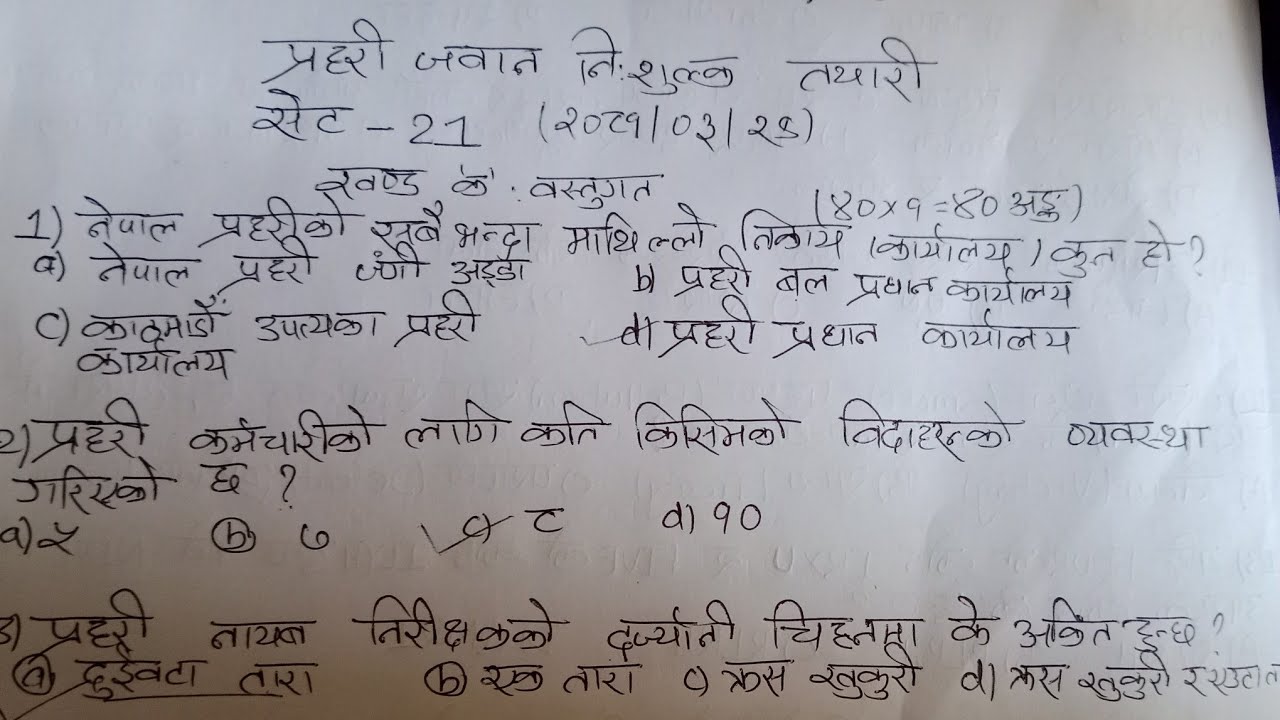 प्रहरी जवान निःशुल्क तयारी
सेट - 21 (२०८१/०३/२८)
खण्ड 'क' : वस्तुगत
(४०×१=४० अङ्क)
1) नेपाल प्रहरीको सबै भन्दा माथिल्लो निकाय (कार्यालय) कुन हो?
a) नेपाल प्रहरी जंगी अड्डा b) प्रहरी बल प्रधान कार्यालय
c) काठमाडौँ उपत्यका प्रहरी d) प्रहरी प्रधान कार्यालय
कार्यालय
२) प्रहरी कर्मचारीको लागि कति किसिमको विदाहरुको व्यवस्था
गरिएको छ ?
a) ५ b) ७ c) ८ d) १०
3) प्रहरी नायब निरीक्षकको दर्ज्यानी चिह्नमा के अंकित हुन्छ ?
a) दुईवटा तारा b) एक तारा c) क्रस खुकुरी d) क्रस खुकुरी र एउटा